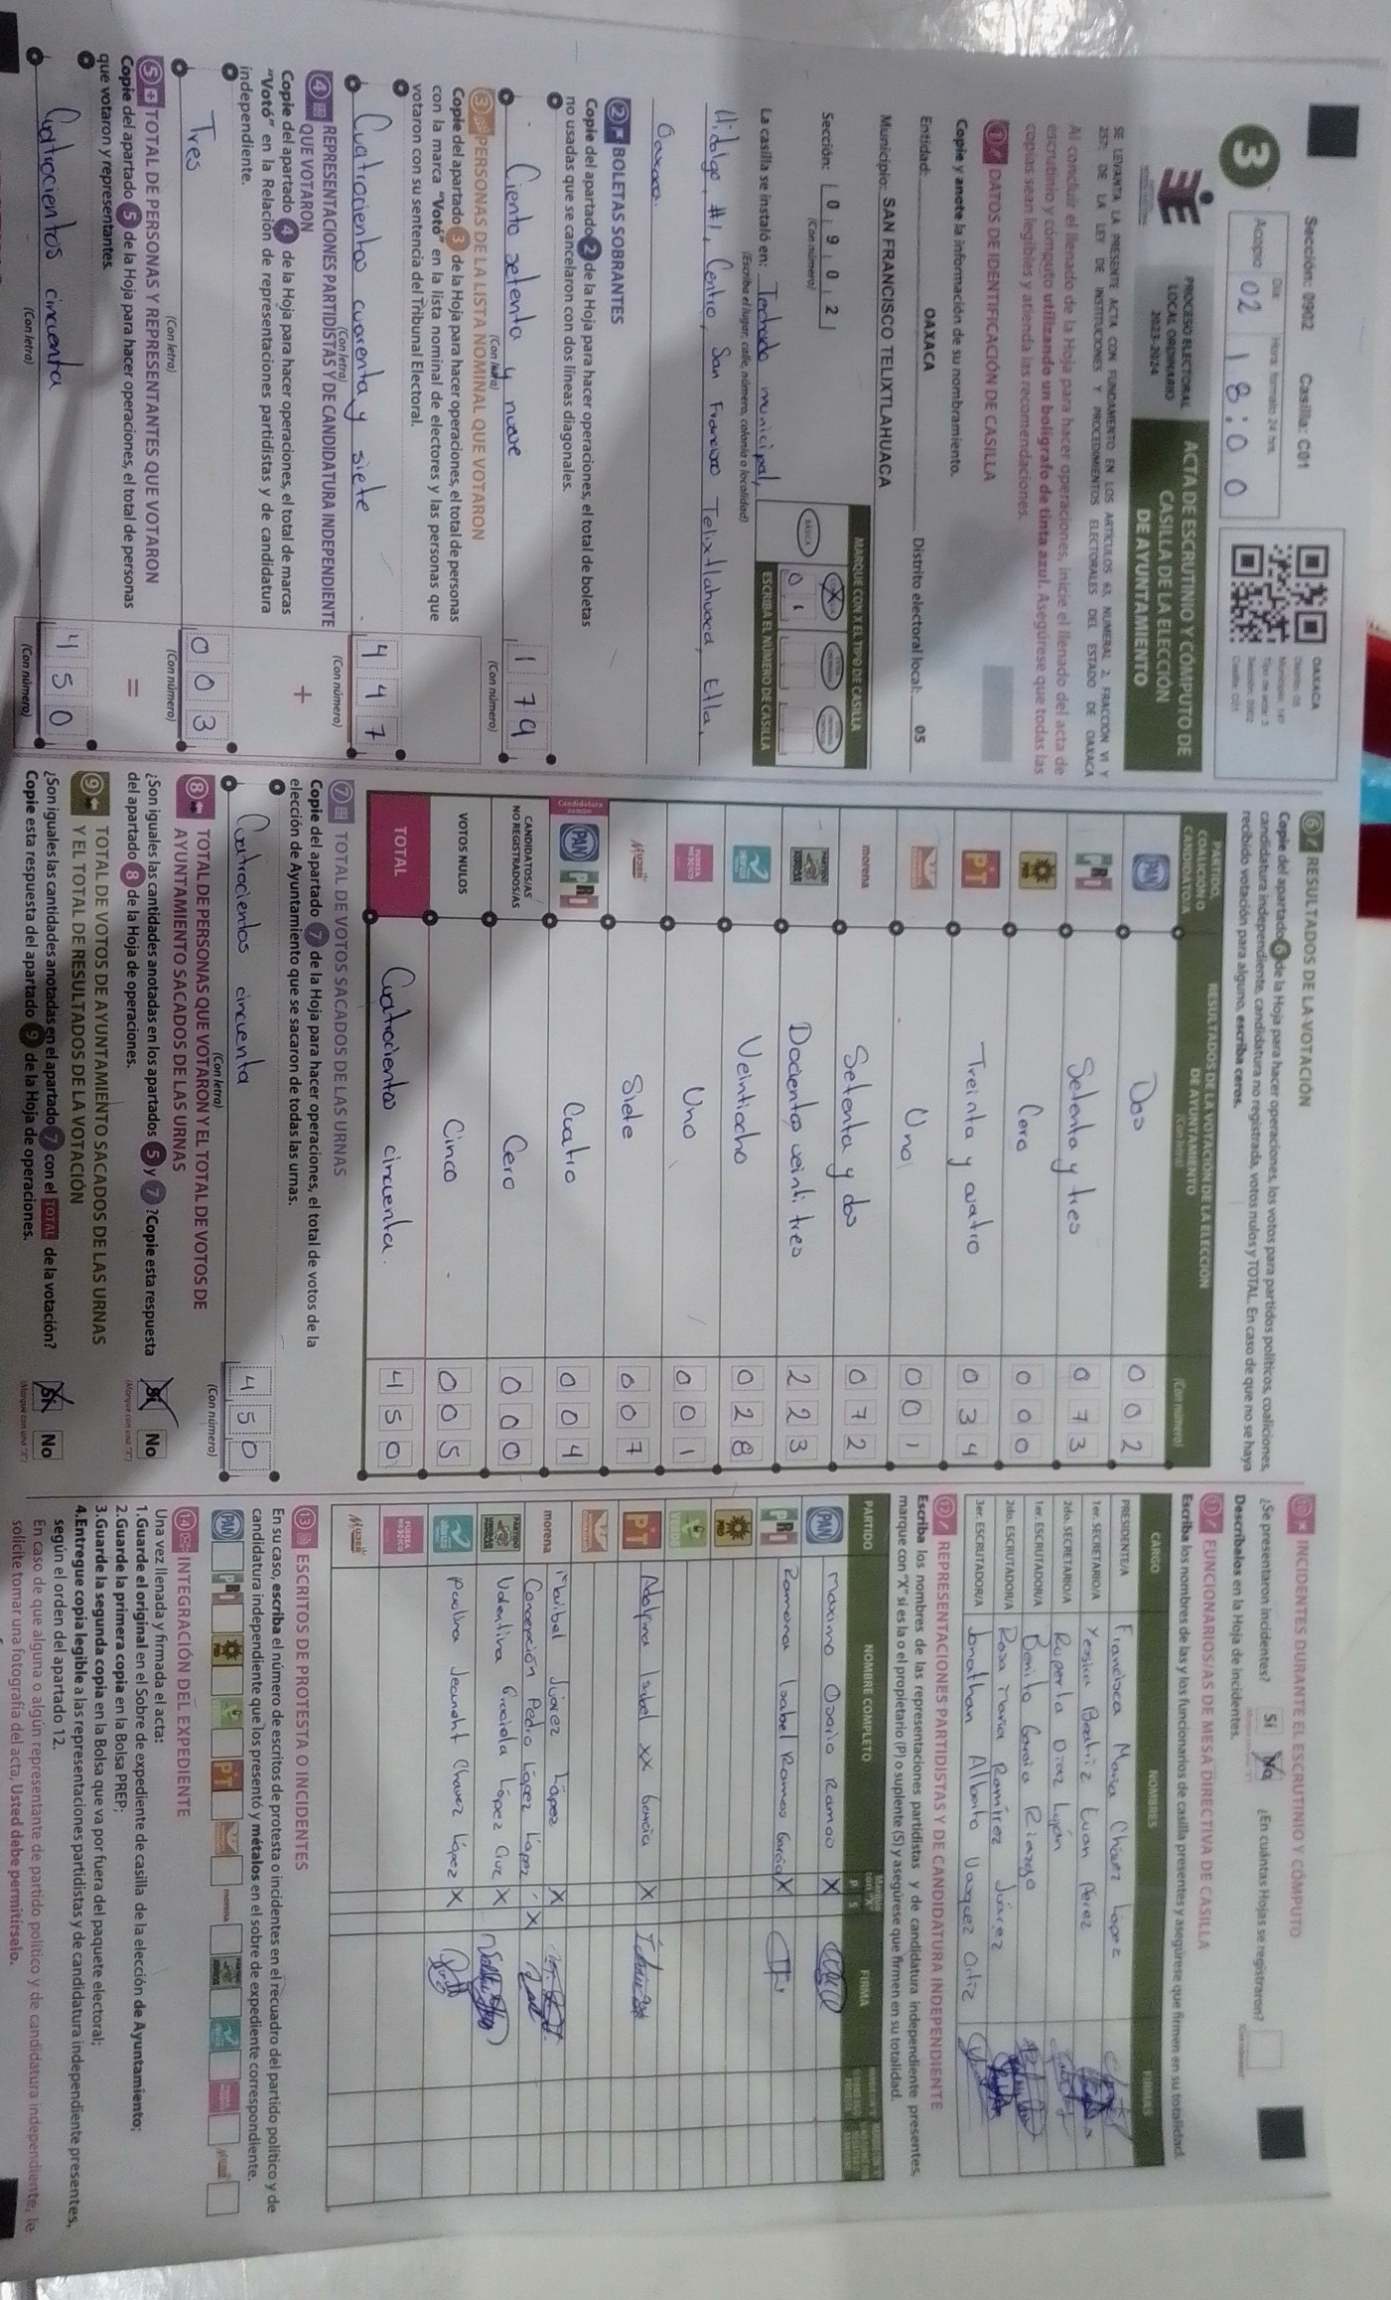 Sección: 0902 Casilla: C01
3
Acopio
Día: Hora: formato 24 hrs.
02 18:00
OAXACA
PROCESO ELECTORAL
LOCAL ORDINARIO
2023-2024
ACTA DE ESCRUTINIO Y CÓMPUTO DE
CASILLA DE LA ELECCIÓN
DE AYUNTAMIENTO
SE LEVANTA LA PRESENTE ACTA CON FUNDAMENTO EN LOS ARTÍCULOS 63, NUMERAL 2, FRACCIÓN VI Y
257; DE LA LEY DE INSTITUCIONES Y PROCEDIMIENTOS ELECTORALES DEL ESTADO DE OAXACA
Al concluir el llenado de la Hoja para hacer operaciones, inicie el llenado del acta de
escrutinio y cómputo utilizando un bolígrafo de tinta azul. Asegúrese que todas las
copias sean legibles y atienda las recomendaciones.
1 DATOS DE IDENTIFICACIÓN DE CASILLA
Copie y anote la información de su nombramiento.
Entidad: OAXACA Distrito electoral local: 05
Municipio: SAN FRANCISCO TELIXTLAHUACA
Sección: 0 9 0 2
(Con número)
MARQUE CON X EL TIPO DE CASILLA
BÁSICA
ESCRIBA EL NÚMERO DE CASILLA
0 1
La casilla se instaló en: Techado municipal,
(Escriba el lugar, calle, número, colonia o localidad)
Hidalgo #1, Centro, San Francisco Telixtlahuaca, Etla,
Oaxaca.
2 BOLETAS SOBRANTES
Copie del apartado 2 de la Hoja para hacer operaciones, el total de boletas
no usadas que se cancelaron con dos líneas diagonales.
Ciento setenta y nueve 1 7 9
(Con letra) (Con número)
3 PERSONAS DE LA LISTA NOMINAL QUE VOTARON
Copie del apartado 3 de la Hoja para hacer operaciones, el total de personas
con la marca "Votó" en la lista nominal de electores y las personas que
votaron con su sentencia del Tribunal Electoral.
Cuatrocientos cuarenta y siete 4 4 7
(Con letra) (Con número)
4 REPRESENTACIONES PARTIDISTAS Y DE CANDIDATURA INDEPENDIENTE
QUE VOTARON
+
Copie del apartado 4 de la Hoja para hacer operaciones, el total de marcas
"Votó" en la Relación de representaciones partidistas y de candidatura
independiente.
Tres 0 0 3
(Con letra) (Con número)
5 TOTAL DE PERSONAS Y REPRESENTANTES QUE VOTARON
=
Copie del apartado 5 de la Hoja para hacer operaciones, el total de personas
que votaron y representantes.
Cuatrocientos cincuenta 4 5 0
(Con letra) (Con número)
6 RESULTADOS DE LA VOTACIÓN
Copie del apartado 6 de la Hoja para hacer operaciones, los votos para partidos políticos, coaliciones,
candidatura independiente, candidatura no registrada, votos nulos y TOTAL. En caso de que no se haya
recibido votación para alguno, escriba ceros.
PARTIDO, COALICIÓN O CANDIDATO/A
RESULTADOS DE LA VOTACIÓN DE LA ELECCIÓN
DE AYUNTAMIENTO
(Con número)
PAN Dos 0 0 2
PRI Setenta y tres 0 7 3
PRD Cero 0 0 0
PT Treinta y cuatro 0 3 4
Uno 0 0 1
morena Setenta y dos 0 7 2
Docientos veinti tres 2 2 3
Veintiocho 0 2 8
FUERZA MÉXICO Uno 0 0 1
MUJER Siete 0 0 7
Candidatura común PAN PRI Cuatro 0 0 4
CANDIDATOS/AS
NO REGISTRADOS/AS Cero 0 0 0
VOTOS NULOS Cinco 0 0 5
TOTAL Cuatrocientos cincuenta. 4 5 0
7 TOTAL DE VOTOS SACADOS DE LAS URNAS
Copie del apartado 7 de la Hoja para hacer operaciones, el total de votos de la
elección de Ayuntamiento que se sacaron de todas las urnas.
Cuatrocientos cincuenta 4 5 0
(Con letra) (Con número)
8 TOTAL DE PERSONAS QUE VOTARON Y EL TOTAL DE VOTOS DE
AYUNTAMIENTO SACADOS DE LAS URNAS
¿Son iguales las cantidades anotadas en los apartados 5 y 7? Copie esta respuesta
del apartado 8 de la Hoja de operaciones.
Sí No
9 TOTAL DE VOTOS DE AYUNTAMIENTO SACADOS DE LAS URNAS
Y EL TOTAL DE RESULTADOS DE LA VOTACIÓN
¿Son iguales las cantidades anotadas en el apartado 7 con el TOTAL de la votación?
Copie esta respuesta del apartado 9 de la Hoja de operaciones.
Sí No
10 INCIDENTES DURANTE EL ESCRUTINIO Y CÓMPUTO
¿Se presentaron incidentes? Sí No ¿En cuántas Hojas se registraron?
Descríbalos en la Hoja de incidentes.
11 FUNCIONARIOS/AS DE MESA DIRECTIVA DE CASILLA
Escriba los nombres de las y los funcionarios de casilla presentes y asegúrese que firmen en su totalidad.
CARGO NOMBRES FIRMAS
PRESIDENTE/A Francisca Maria Chávez López
1er. SECRETARIO/A Yessica Beatriz Luan Perez
2do. SECRETARIO/A Ruperta Diaz Luján
1er. ESCRUTADOR/A Benito Garcia
2do. ESCRUTADOR/A Rosa Maria Ramírez Juárez
3er. ESCRUTADOR/A Jonathan Alberto Vazquez Ortiz
12 REPRESENTACIONES PARTIDISTAS Y DE CANDIDATURA INDEPENDIENTE
Escriba los nombres de las representaciones partidistas y de candidatura independiente presentes,
marque con "X" si es la o el propietario (P) o suplente (S) y asegúrese que firmen en su totalidad.
PARTIDO NOMBRE COMPLETO P S FIRMA
PAN Maximo Osorio Ramos X
PRI Ramona Isabel Ramos García X
PRD
VERDE
PT Adelfina Isabel XX García X
morena Maribel Juárez López X
Concepción Pedro López López X
Valentina Graciela López Cruz X
Paulina Jeanett Chavez López X
FUERZA MÉXICO
MUJER
13 ESCRITOS DE PROTESTA O INCIDENTES
En su caso, escriba el número de escritos de protesta o incidentes en el recuadro del partido político y de
candidatura independiente que los presentó y métalos en el sobre de expediente correspondiente.
PAN PRI PRD PT morena
14 INTEGRACIÓN DEL EXPEDIENTE
Una vez llenada y firmada el acta:
1.Guarde el original en el Sobre de expediente de casilla de la elección de Ayuntamiento;
2.Guarde la primera copia en la Bolsa PREP;
3.Guarde la segunda copia en la Bolsa que va por fuera del paquete electoral;
4.Entregue copia legible a las representaciones partidistas y de candidatura independiente presentes,
según el orden del apartado 12.
En caso de que alguna o algún representante de partido político y de candidatura independiente, le
solicite tomar una fotografía del acta, Usted debe permitírselo.